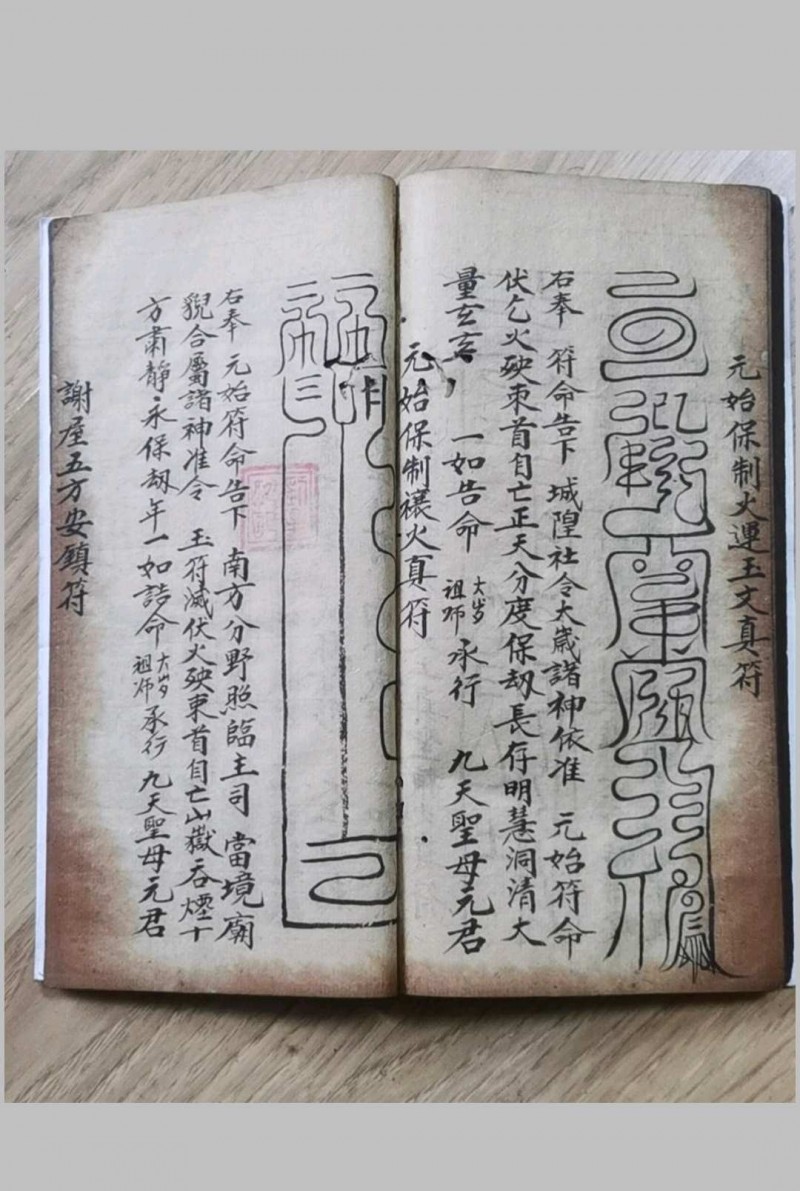 元始保制火運玉文真符
右奉 符命告下 城隍社令太歲諸神依准 元始符命
伏乞火殃束首自亡正天分度保劫長存明慧洞清大
量玄玄 一如告命 大岁祖师承行 九天聖母元君
元始保制禳火真符
右奉 元始符命告下 南方分野照臨主司 當境廟
貎合屬諸神准令 玉符滅伏火殃束首自亡山嶽吞煙十
方肅静永保劫年一如誥命 大岁祖师承行 九天聖母元君
謝座五方安鎮符